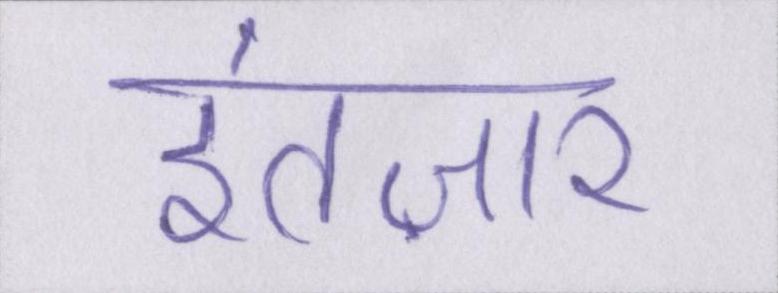 इंतज़ार